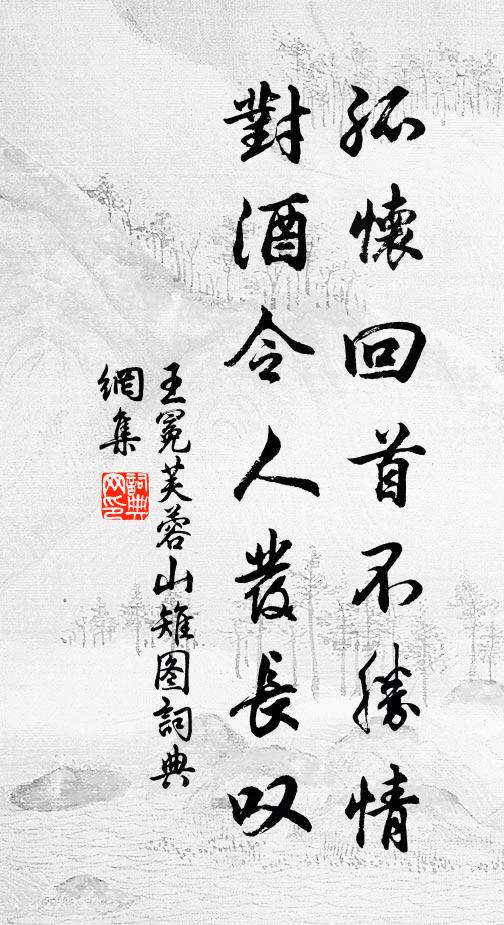 孤懷回首不勝情
對酒令人發長叹
王冕芙蓉山雉图詞典
網集
詞典
网印